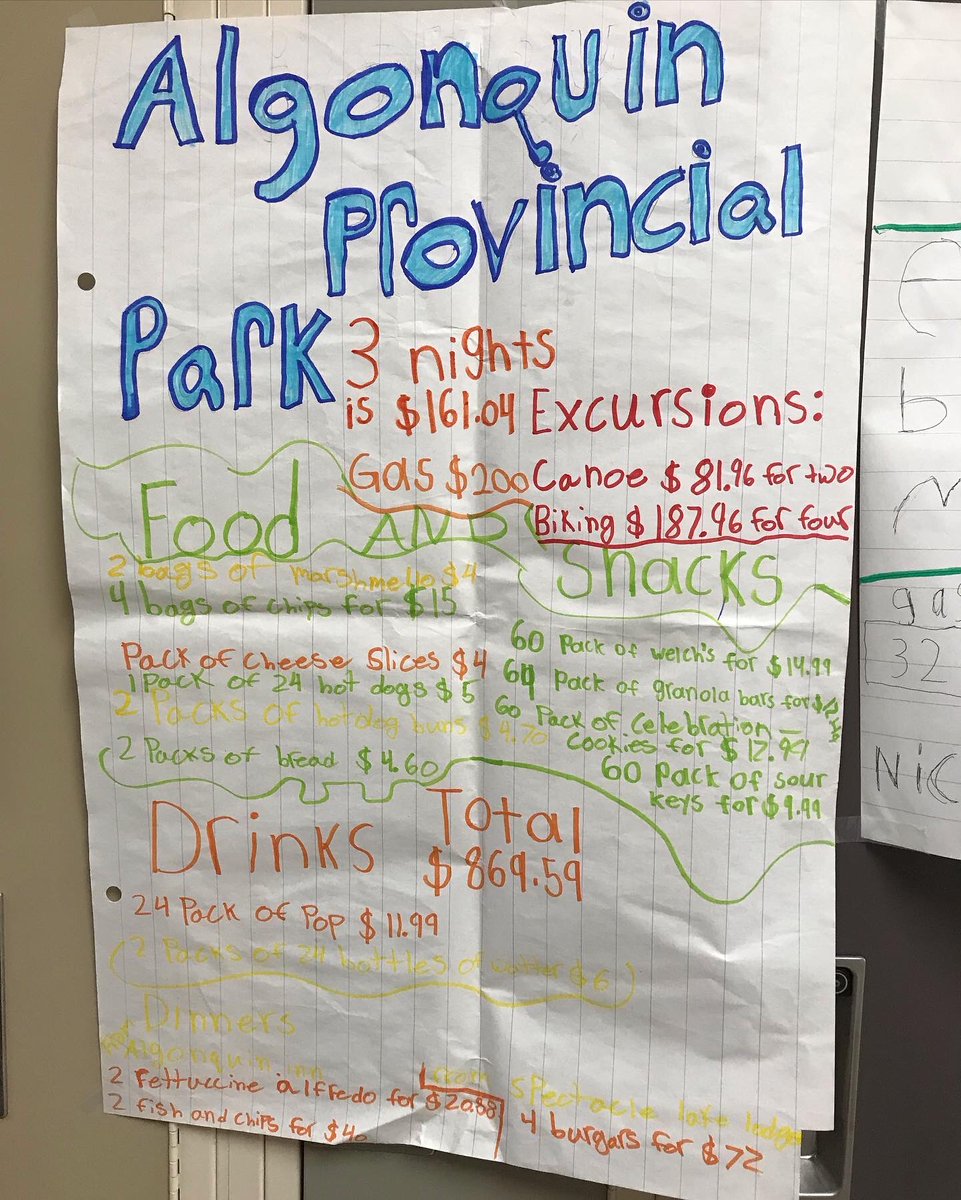 Algonquin
Provincial
Park
3 nights
is $161.04
Gas $200
Excursions:
Canoe $81.96 for two
Biking $187.96 for four
Food AND
Snacks
2 bags of marshmello $4
4 bags of chips for $15
Pack of cheese slices $4
1 Pack of 24 hot dogs $5
2 Packs of hotdog buns $4.70
2 Packs of bread $4.60
60 Pack of welch's for $14.99
64 Pack of granola bars for
60 Pack of celebration
cookies for $12.99
60 Pack of sour
keys for $9.99
Drinks
Total
$869.59
24 Pack of Pop $11.99
2 Packs of 24 bottles of watter $6
Dinners
Algonquin inn
2 Fettuccine alfredo for
2 fish and chips for
from spectacle lake lodge
4 burgars for $72
gas
32
Nic